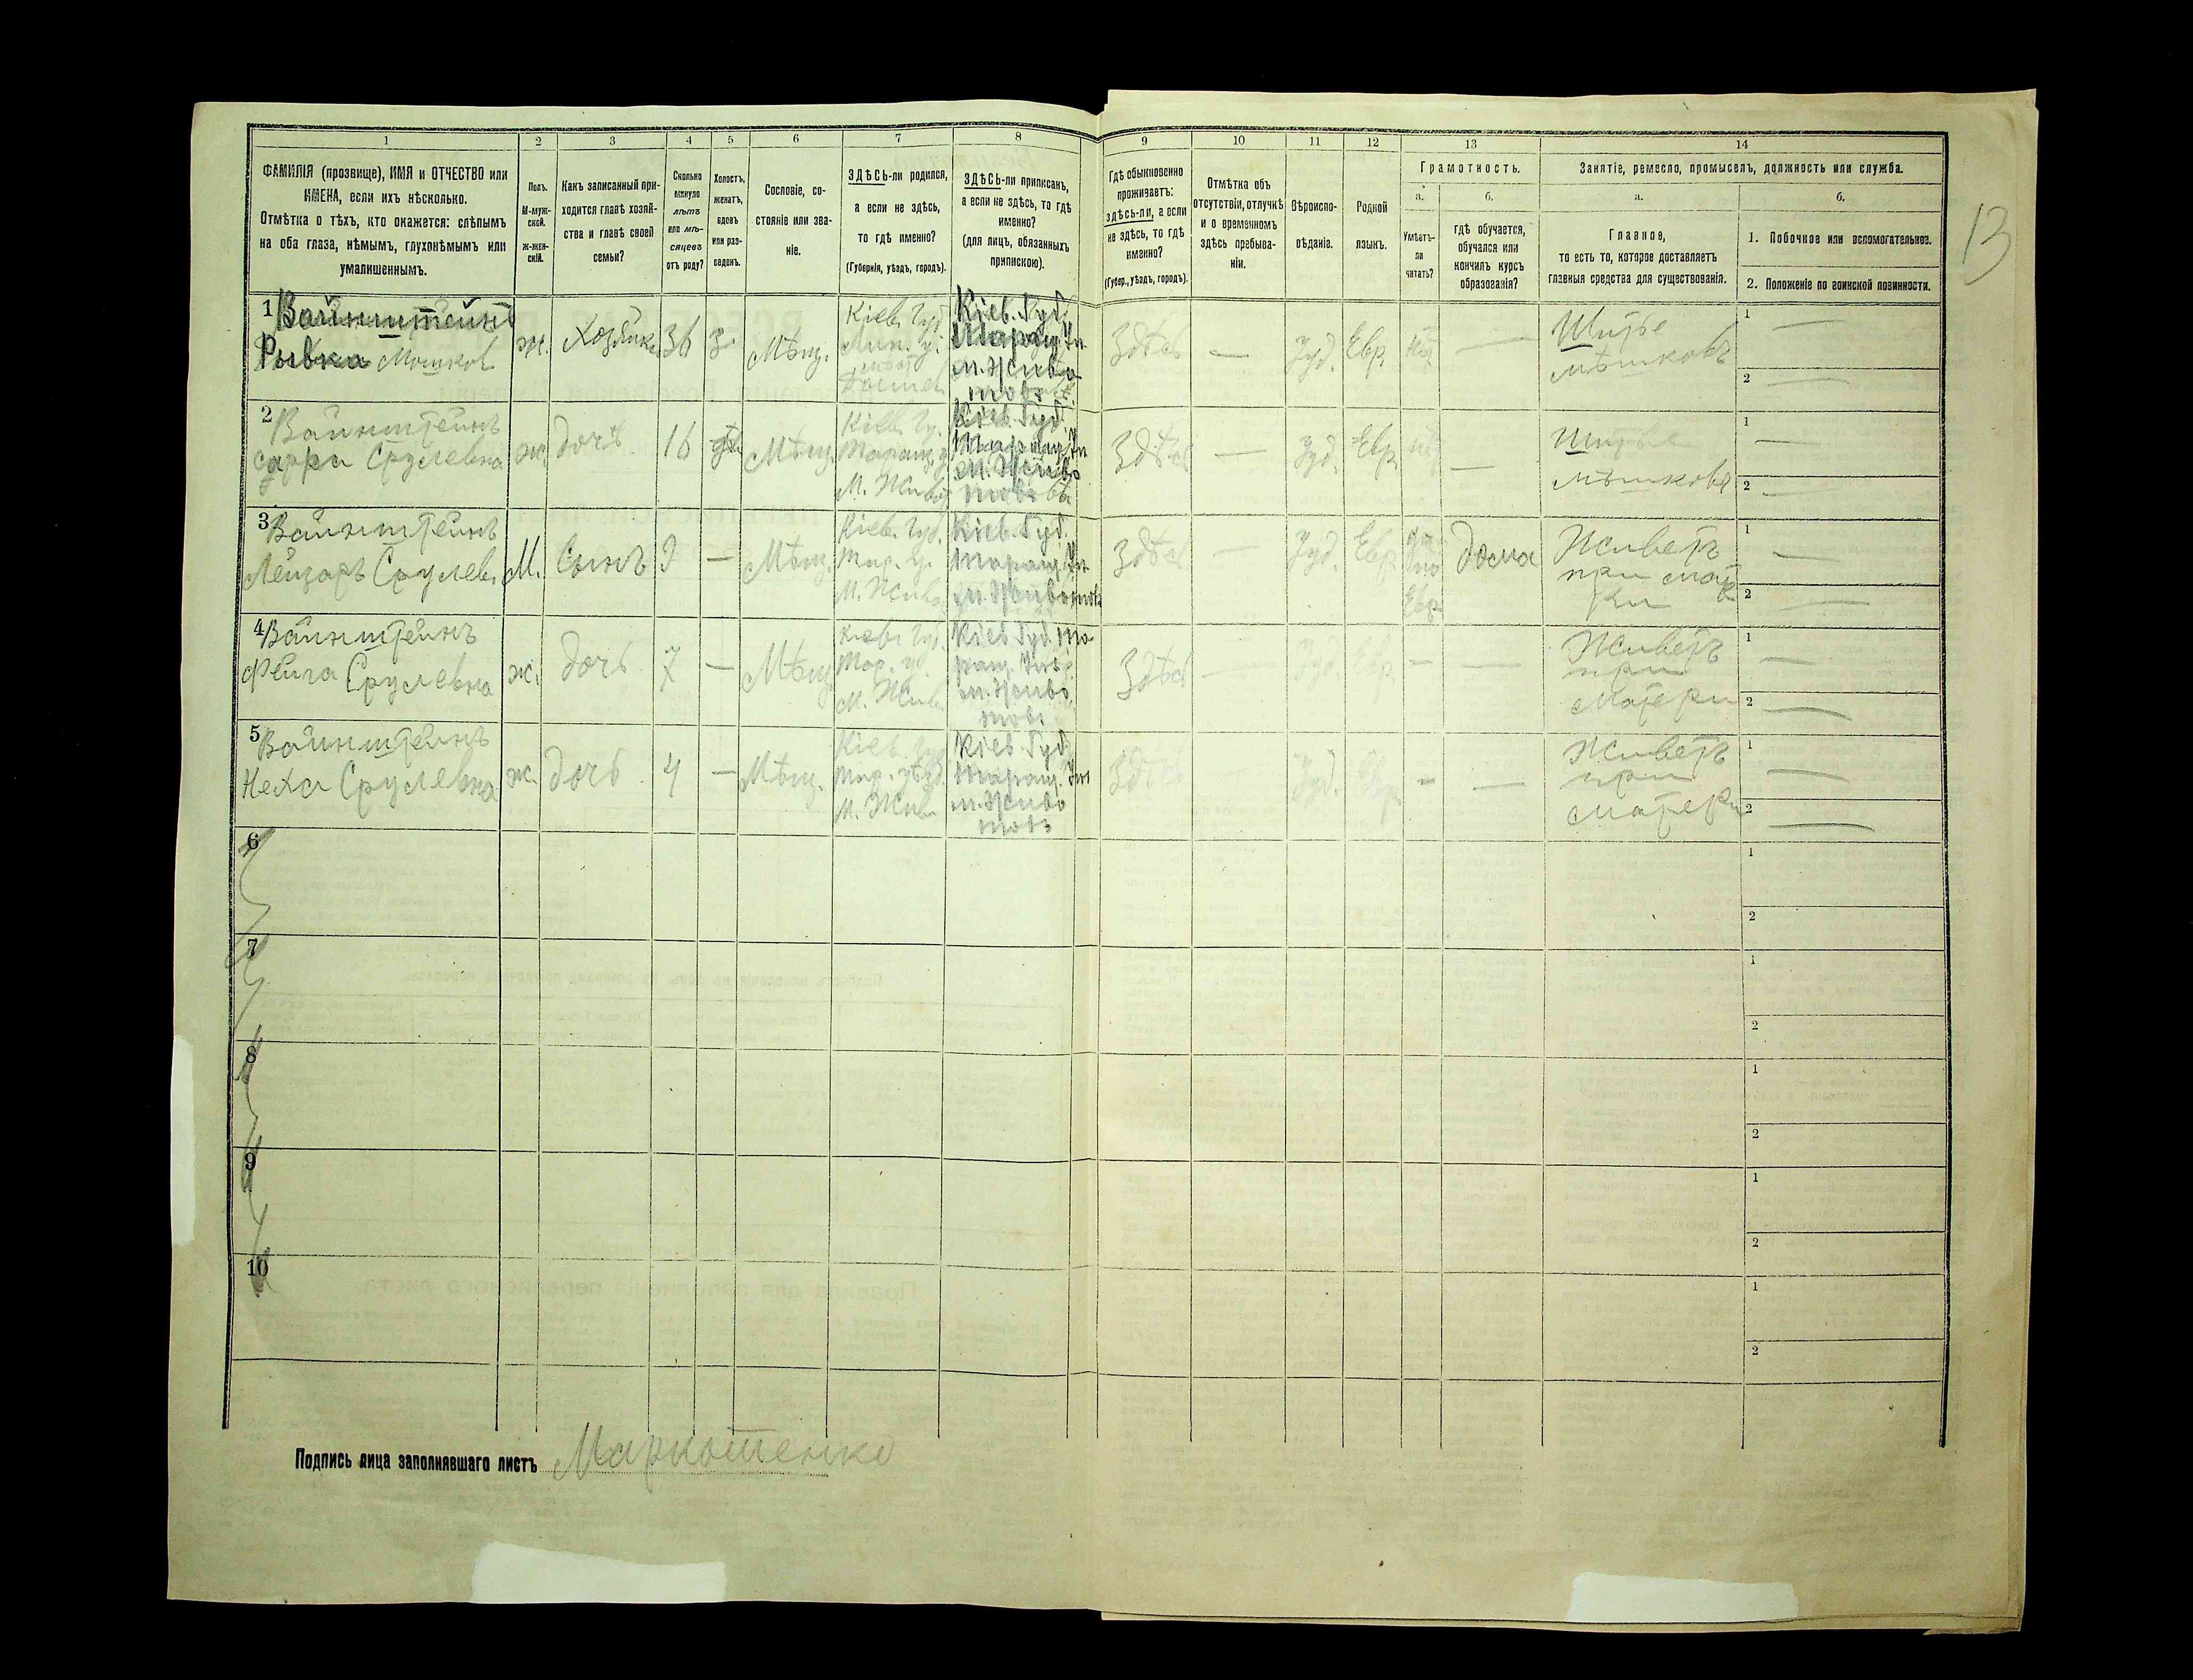 1
2
3
4
5
6
7
8
9
10
11
12
13
14
ФАМИЛІЯ (прозвище), ИМЯ и ОТЧЕСТВО или
ИМЕНА, если ихъ нѣсколько.
Отмѣтка о тѣхъ, кто окажется: слѣпымъ
на оба глаза, нѣмымъ, глухонѣмымъ или
умалишеннымъ.
Полъ.
М-муж-
ской.
ж-жен-
скій.
Какъ записанный при-
ходится главѣ хозяй-
ства и главѣ своей
семьи?
Сколько
минуло
лѣтъ
или мѣ-
сяцевъ
отъ роду?
Холостъ,
женатъ,
вдовъ
или раз-
веденъ.
Сословіе, со-
стояніе или зва-
ніе.
ЗДѢСЬ-ли родился,
а если не здѣсь,
то гдѣ именно?
(Губернія, уѣздъ, городъ).
ЗДѢСЬ-ли приписанъ,
а если не здѣсь, то гдѣ
именно?
(для лицъ, обязанныхъ
припискою).
Гдѣ обыкновенно
проживаетъ:
здѣсь-ли, а если
не здѣсь, то гдѣ
именно?
(Губер., уѣздъ, городъ).
Отмѣтка объ
отсутствіи, отлучкѣ
и о временномъ
здѣсь пребыва-
ніи.
Вѣроиспо-
вѣданіе.
Родной
языкъ.
Грамотность.
а.
Умѣетъ-
ли
читать?
б.
гдѣ обучается,
обучался или
кончилъ курсъ
образованія?
Занятіе, ремесло, промыселъ, должность или служба.
а.
Главное,
то есть то, которое доставляетъ
главныя средства для существованія.
б.
1. Побочное или вспомогательное.
2. Положеніе по воинской повинности.
13
1 Вайнштейнъ
Рывка Мошков
ж.
Хозяйка
36
Мѣщ.
Кіев. Губ.
Кіев. Губ.
Таращ. Уѣ
м. Живо
товъ
Здѣсь
—
Іуд.
Евр.
—
Шитье
мѣшковъ
1 —
2 —
2 Вайнштейнъ
Сурра Срулевна
ж.
дочь
16
Мѣщ.
Кіев. Гу.
Таращ. у.
М. Живо
Кіев. Губ.
Таращ. Уѣ
м. Живо
товъ
Здѣсь
—
Іуд.
Евр.
—
Шитье
мѣшковъ
1 —
2 —
3 Вайнштейнъ
Лейзаръ Срулев.
М.
Сынъ
9
—
Мѣщ.
Кіев. Губ.
Тар. у.
М. Живо
Кіев. Губ.
Таращ. Уѣ
м. Животов
Здѣсь
—
Іуд.
Евр.
Евр.
дома
Живетъ
при мат
ки
1 —
2 —
4 Вайнштейнъ
Фейга Срулевна
ж.
дочь
7
—
Мѣщ.
Кіев. Губ.
Тар. у.
М. Жив.
Кіев. Губ. Та
ращ. Уѣз.
м. Живо
товъ
Здѣсь
—
Іуд.
Евр.
—
—
Живетъ
при
матери
1 —
2 —
5 Вайнштейнъ
Неха Срулевна
ж.
дочь
4
—
Мѣщ.
Кіев. Гу
Тар. уѣзд.
М. Жив.
Кіев. Губ.
Таращ. Уѣ
м. Живо
товъ
Здѣсь
Іуд.
Евр.
—
—
Живетъ
при
матери
1 —
2 —
6
1
2
7
1
2
8
1
2
9
1
2
10
1
2
Подпись лица заполнявшаго листъ